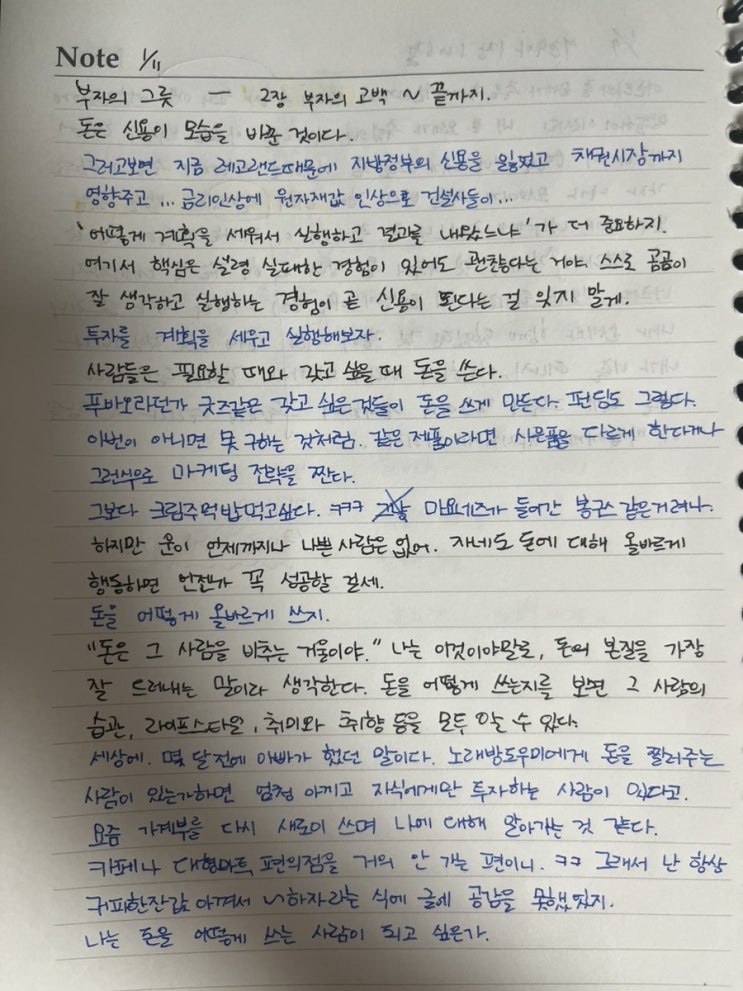 Note 1/11
부자의 그릇 — 2장 부자의 고백 ~ 끝까지.
돈은 신용이 모습을 바꾼 것이다.
그러고보면 지금 레고랜드때문에 지방정부의 신용을 잃었고 채권시장까지
영향주고 ... 금리인상에 원자재값 인상으로 건설사들이 ...
'어떻게 계획을 세워서 실행하고 결과를 내었느냐'가 더 중요하지.
여기서 핵심은 설령 실패한 경험이 있어도 괜찮다는 거야. 스스로 곰곰이
잘 생각하고 실행하는 경험이 곧 신용이 된다는 걸 잊지 말게.
투자를 계획을 세우고 실행해보자.
사람들은 필요할 때와 갖고 싶을 때 돈을 쓴다.
푸바오라던가 굿즈같은 갖고 싶은것들이 돈을 쓰게 만든다. 펀딩도 그렇다.
이번이 아니면 못 구하는 것처럼. 같은 제품이라면 사은품을 다르게 한다거나
그런식으로 마케팅 전략을 짠다.
그보다 크림주먹밥먹고싶다. ㅋㅋㅋ 마요네즈가 들어간 봉구스 같은거려나.
하지만 운이 언제까지나 나쁜 사람은 없어. 자네도 돈에 대해 올바르게
행동하면 언젠가 꼭 성공할 걸세.
돈을 어떻게 올바르게 쓰지.
"돈은 그 사람을 비추는 거울이야." 나는 이것이야말로, 돈의 본질을 가장
잘 드러내는 말이라 생각한다. 돈을 어떻게 쓰는지를 보면 그 사람의
습관, 라이프스타일, 취미와 취향 등을 모두 알 수 있다.
세상에. 몇 달 전에 아빠가 했던 말이다. 노래방도우미에게 돈을 찔러주는
사람이 있는가하면 엄청 아끼고 자식에게만 투자하는 사람이 있다고.
요즘 가계부를 다시 새로이 쓰며 나에 대해 알아가는 것 같다.
카페나 대형마트 편의점을 거의 안 가는 편이니. ㅋㅋ 그래서 난 항상
커피한잔값 아껴서 ~하자라는 식에 글에 공감을 못했었지.
나는 돈을 어떻게 쓰는 사람이 되고 싶은가.